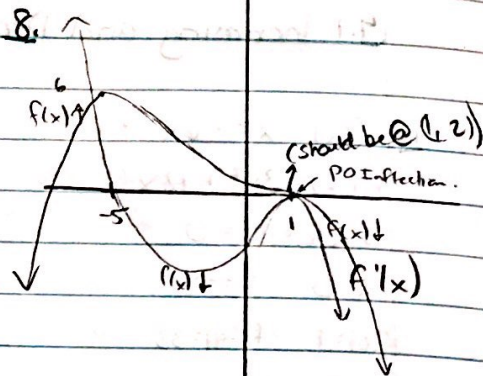 8.
6
f(x)↑
(should be @ (1, 2))
PO Inflection.
-5
1
f(x)↓
f(x)↓
f'(x)